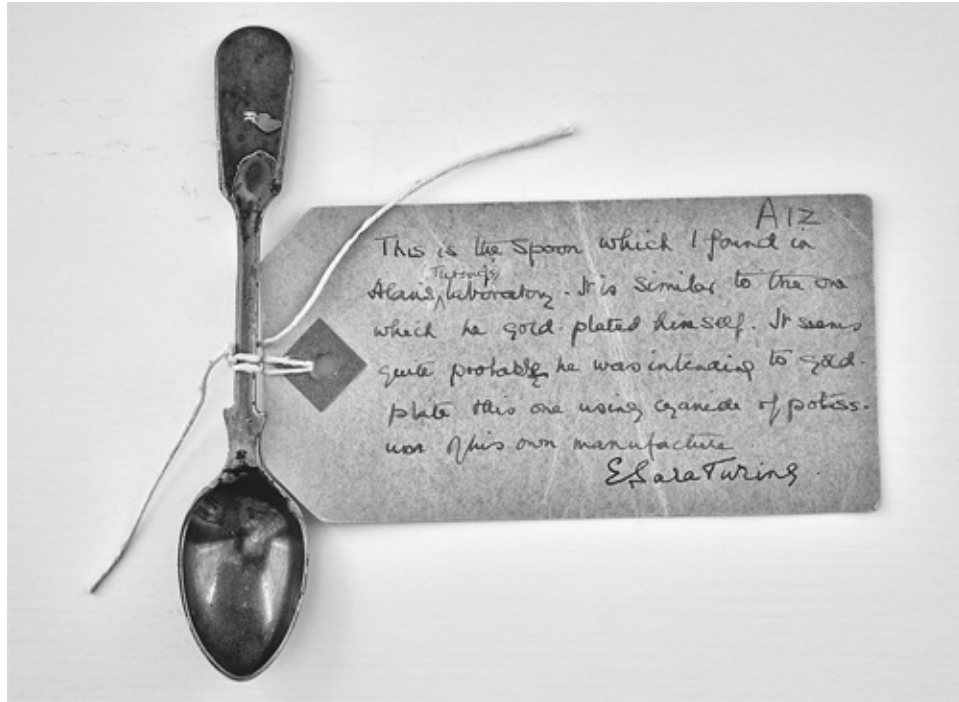 A12
This is the Spoon which I found in
Turing's
Alan's laboratory. It is similar to the one
which he gold-plated himself. It seems
quite probable he was intending to gold-
plate this one using cyanide of potass-
ium of his own manufacture
E. Sara Turing.